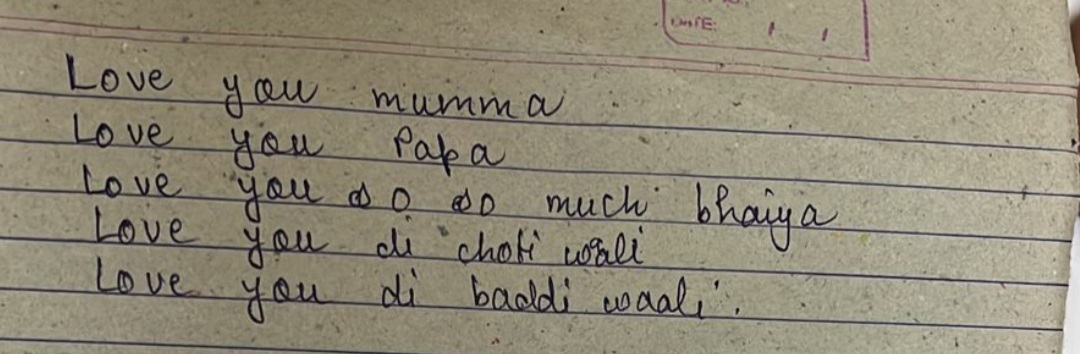 DATE: / /
Love you mumma
Love you Papa
Love you so so much bhaiya
Love you di choti wali
Love you di baddi waali.